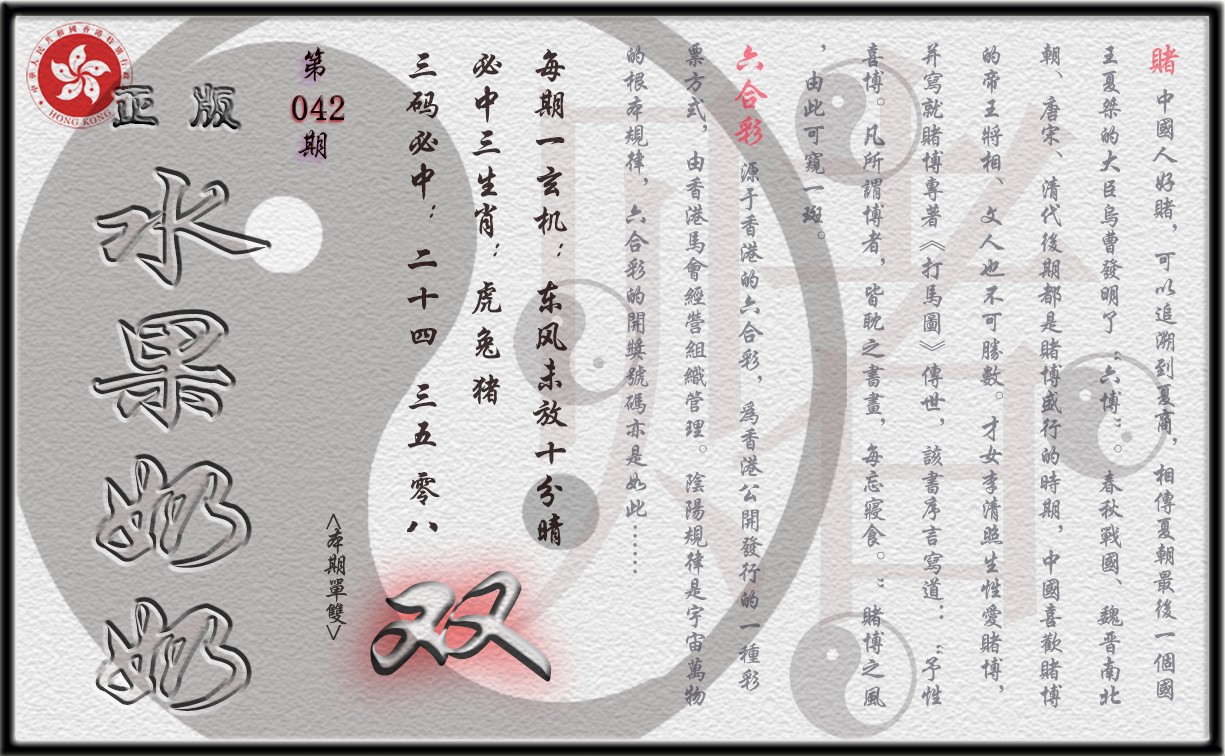 賭 中國人好賭，可以追溯到夏商，相傳夏朝最後一個國
王夏桀的大臣烏曹發明了“六博”。春秋戰國、魏晋南北
朝、唐宋、清代後期都是賭博盛行的時期，中國喜歡賭博
的帝王將相、文人也不可勝數。才女李清照生性愛賭博，
并寫就賭博專著《打馬圖》傳世，該書序言寫道：“予性
喜博。凡所謂博者，皆眈之書畫，每忘寢食。”賭博之風
，由此可窺一斑。
六合彩 源于香港的六合彩，爲香港公開發行的一種彩
票方式，由香港馬會經營組織管理。陰陽規律是宇宙萬物
的根本規律，六合彩的開獎號碼亦是如此......
每期一玄机：东风未放十分晴
必中三生肖：虎兔猪
三码必中：二十四 三五 零八
双
<本期單雙>
第
042
期
正版
水果奶奶
中華人民共和國香港特別行政區
HONG KONG